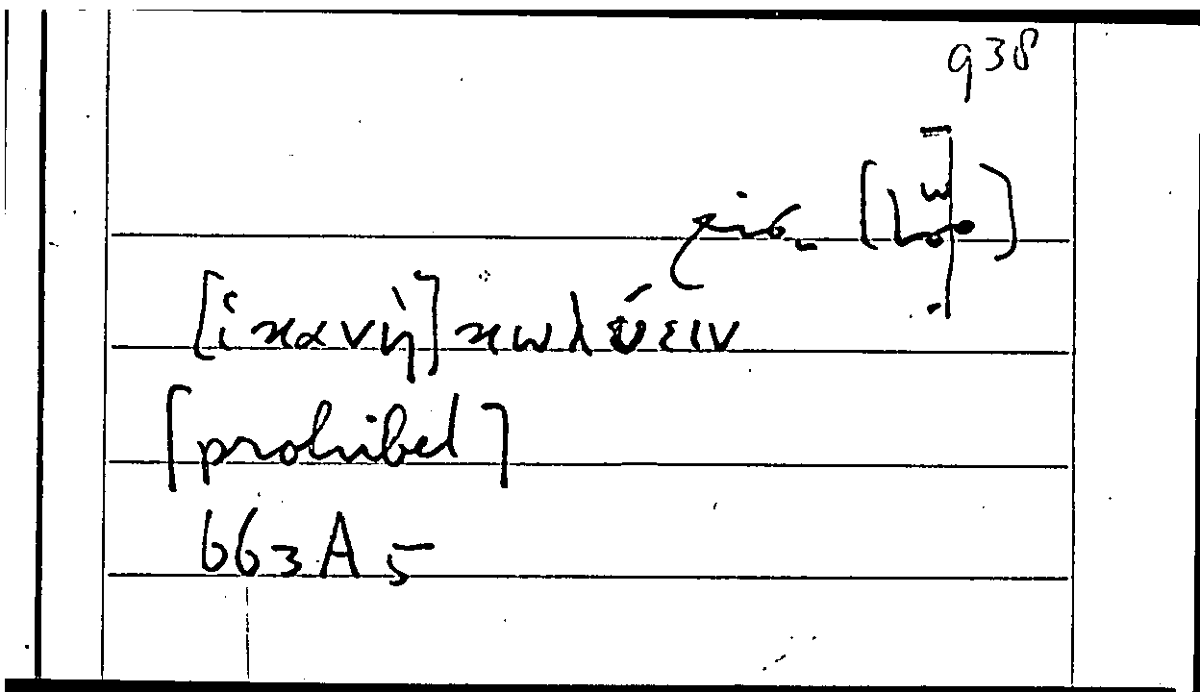 938
[ἱκανὴ] κωλύειν
[prohibet]
663A5